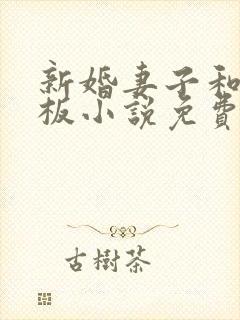 新婚妻子和
板小説免費
古樹茶